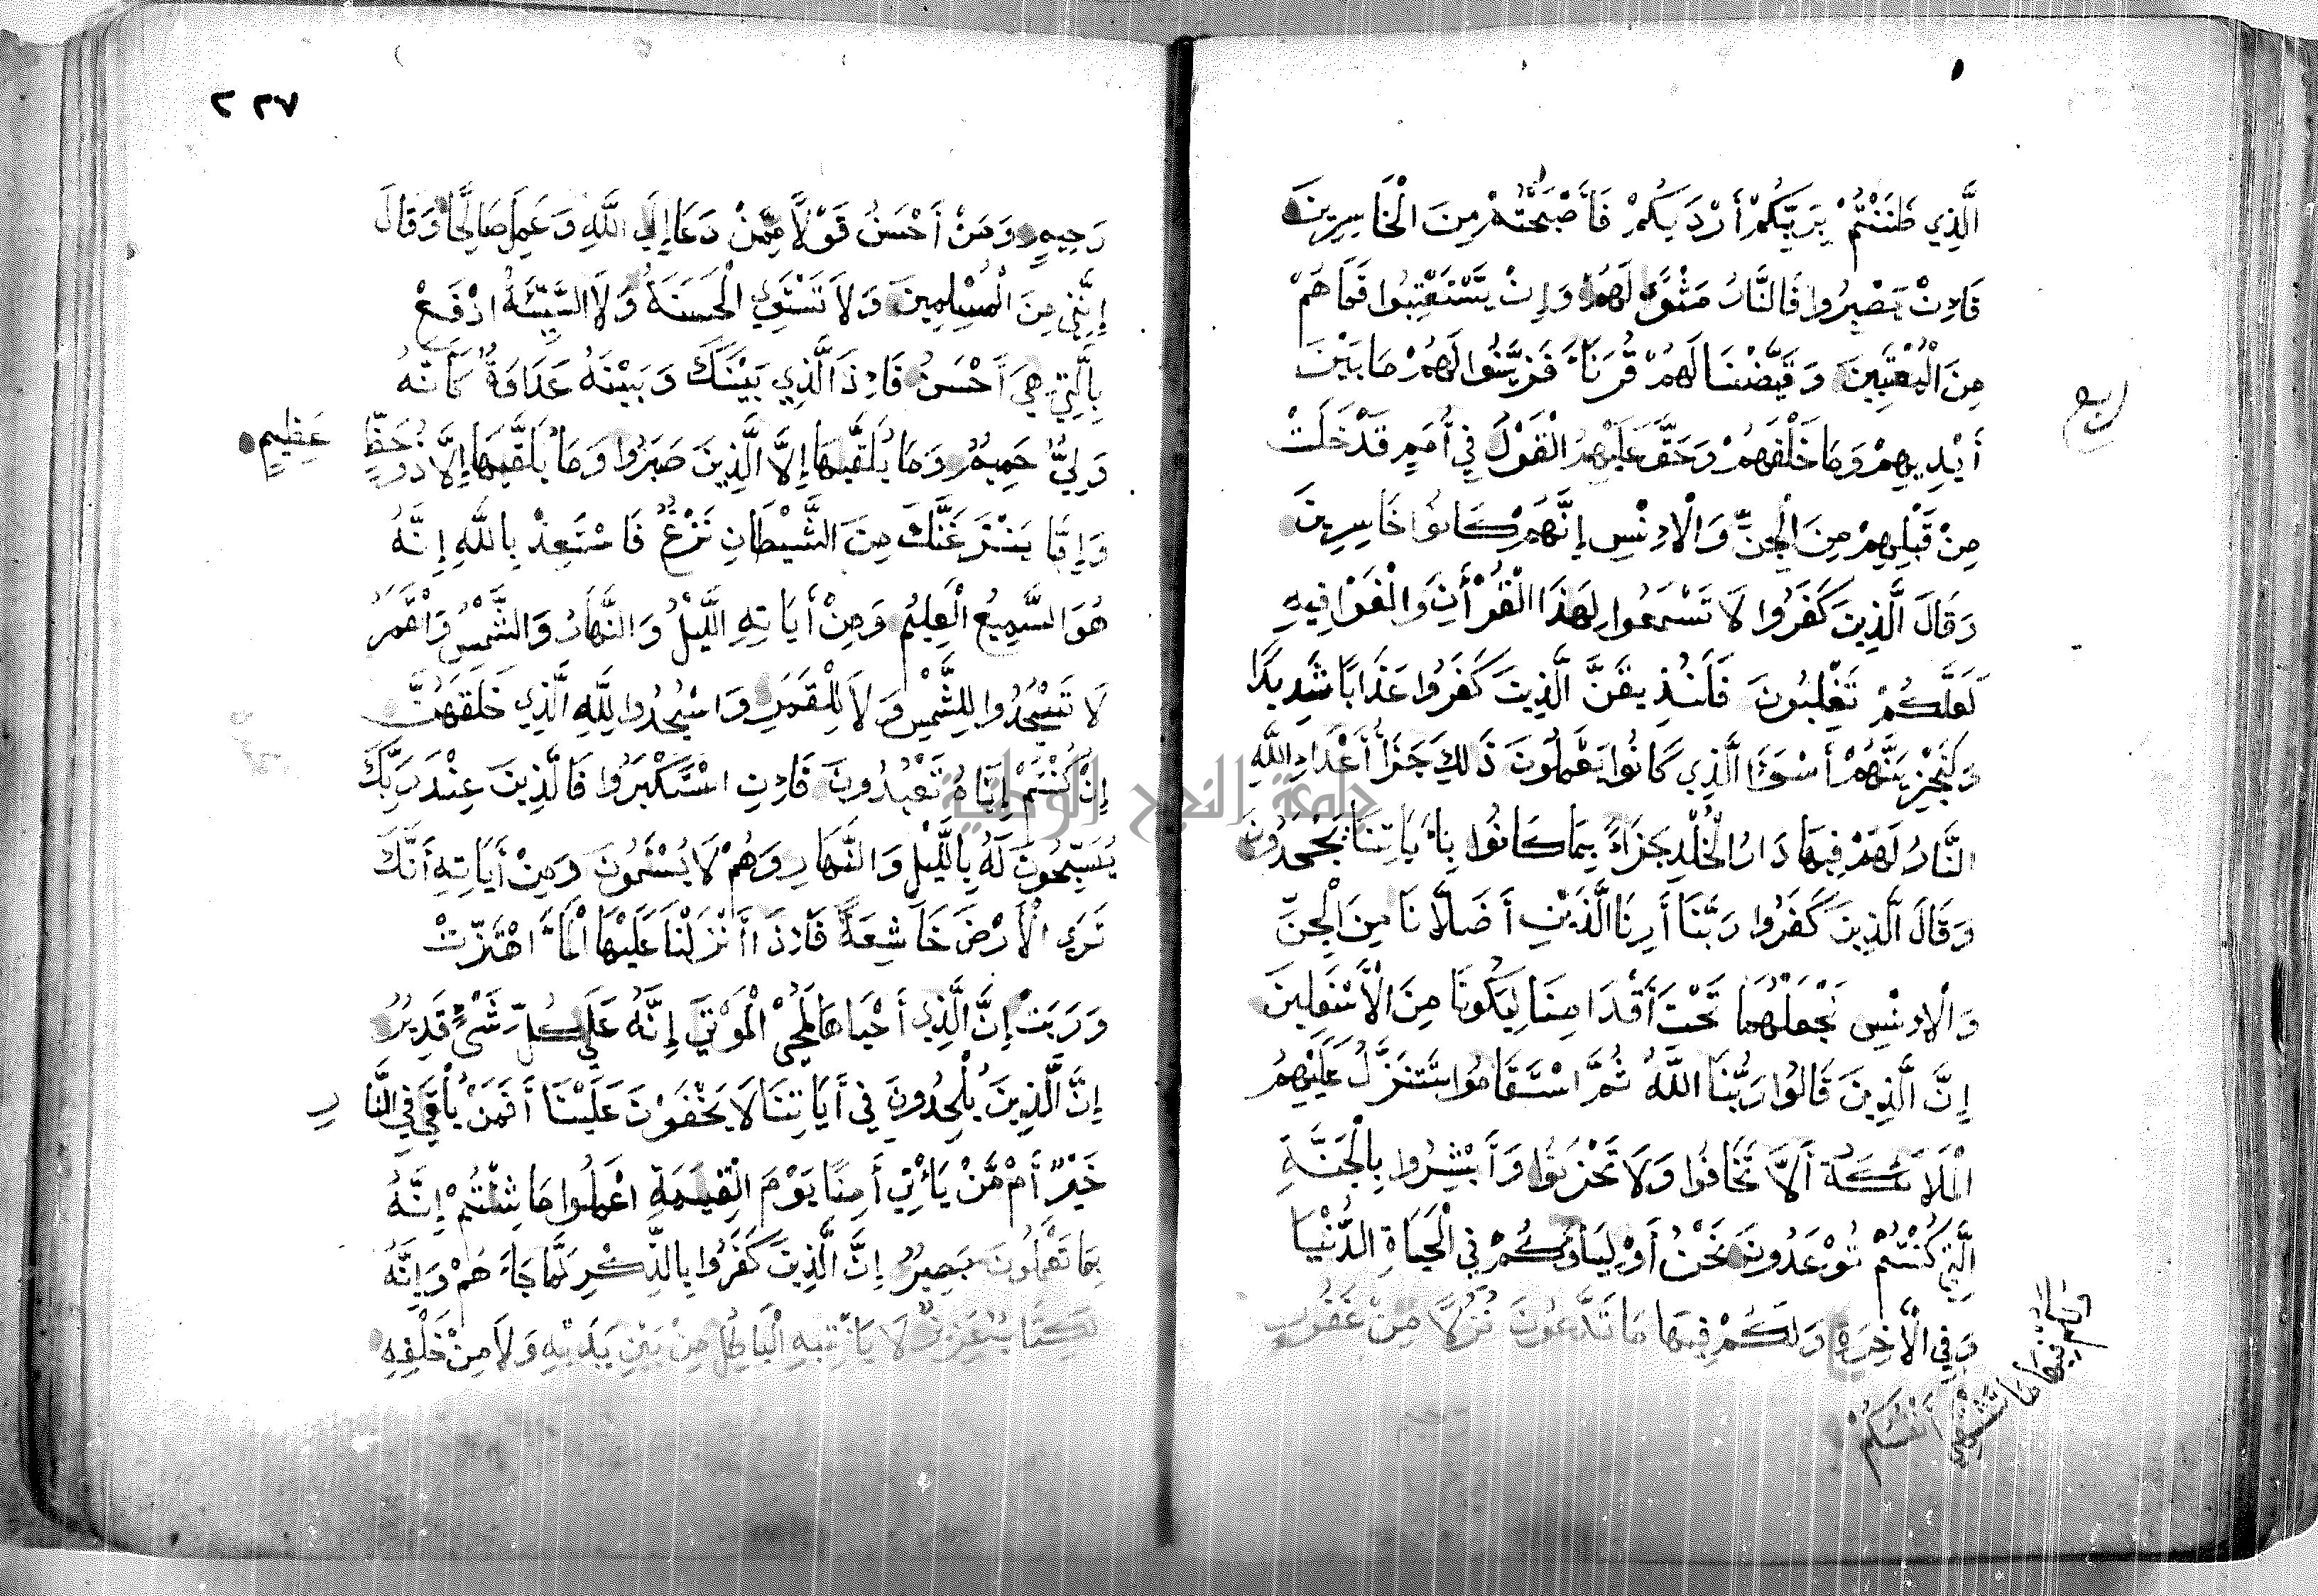 الَّذِي ظَنَنْتُمْ بِرَبِّكُمْ أَرْدَيكُمْ فَأَصْبَحْتُمْ مِنَ الْخَاسِرِينَ
فَإِنْ يَصْبِرُوا فَالنَّارُ مَثْوًى لَهُمْ وَإِنْ يَسْتَعْتِبُوا فَمَا هُمْ
مِنَ الْمُعْتَبِينَ وَقَيَّضْنَا لَهُمْ قُرَنَاءَ فَزَيَّنُوا لَهُمْ مَا بَيْنَ
أَيْدِيهِمْ وَمَا خَلْفَهُمْ وَحَقَّ عَلَيْهِمُ الْقَوْلُ فِي أُمَمٍ قَدْ خَلَتْ
ربع
مِنْ قَبْلِهِمْ مِنَ الْجِنِّ وَالْإِنْسِ إِنَّهُمْ كَانُوا خَاسِرِينَ
وَقَالَ الَّذِينَ كَفَرُوا لَا تَسْمَعُوا لِهَذَا الْقُرْأَنِ وَالْغَوْا فِيهِ
لَعَلَّكُمْ تَغْلِبُونَ فَلَنُذِيقَنَّ الَّذِينَ كَفَرُوا عَذَابًا شَدِيدًا
وَلَنَجْزِيَنَّهُمْ أَسْوَءَ الَّذِي كَانُوا يَعْمَلُونَ ذَلِكَ جَزَاءُ أَعْدَاءِ اللَّهِ
النَّارُ لَهُمْ فِيهَا دَارُ الْخُلْدِ جَزَاءً بِمَا كَانُوا بِأَيَاتِنَا يَجْحَدُونَ
وَقَالَ الَّذِينَ كَفَرُوا رَبَّنَا أَرِنَا الَّذَيْنِ أَضَلَّانَا مِنَ الْجِنِّ
وَالْإِنْسِ نَجْعَلْهُمَا تَحْتَ أَقْدَامِنَا لِيَكُونَا مِنَ الْأَسْفَلِينَ
إِنَّ الَّذِينَ قَالُوا رَبُّنَا اللَّهُ ثُمَّ اسْتَقَامُوا تَتَنَزَّلُ عَلَيْهِمُ
الْمَلَائِكَةُ أَلَّا تَخَافُوا وَلَا تَحْزَنُوا وَأَبْشِرُوا بِالْجَنَّةِ
الَّتِي كُنْتُمْ تُوعَدُونَ نَحْنُ أَوْلِيَاؤُكُمْ فِي الْحَيَاةِ الدُّنْيَا
وَفِي الْأَخِرَةِ وَلَكُمْ فِيهَا مَا تَدَّعُونَ نُزُلًا مِنْ غَفُورٍ
وَلَكُمْ فِيهَا مَا تَشْتَهِي أَنْفُسُكُمْ
٢٦٧
رَحِيمٍ وَمَنْ أَحْسَنُ قَوْلًا مِمَّنْ دَعَا إِلَى اللَّهِ وَعَمِلَ صَالِحًا وَقَالَ
إِنَّنِي مِنَ الْمُسْلِمِينَ وَلَا تَسْتَوِي الْحَسَنَةُ وَلَا السَّيِّئَةُ ادْفَعْ
بِالَّتِي هِيَ أَحْسَنُ فَإِذَا الَّذِي بَيْنَكَ وَبَيْنَهُ عَدَاوَةٌ كَأَنَّهُ
وَلِيٌّ حَمِيمٌ وَمَا يُلَقَّيهَا إِلَّا الَّذِينَ صَبَرُوا وَمَا يُلَقَّيهَا إِلَّا ذُو حَظٍّ عَظِيمٍ
وَإِمَّا يَنْزَغَنَّكَ مِنَ الشَّيْطَانِ نَزْغٌ فَاسْتَعِذْ بِاللَّهِ إِنَّهُ
هُوَ السَّمِيعُ الْعَلِيمُ وَمِنْ أَيَاتِهِ اللَّيْلُ وَالنَّهَارُ وَالشَّمْسُ وَالْقَمَرُ
لَا تَسْجُدُوا لِلشَّمْسِ وَلَا لِلْقَمَرِ وَاسْجُدُوا لِلَّهِ الَّذِي خَلَقَهُنَّ
إِنْ كُنْتُمْ إِيَّاهُ تَعْبُدُونَ فَإِنِ اسْتَكْبَرُوا فَالَّذِينَ عِنْدَ رَبِّكَ
يُسَبِّحُونَ لَهُ بِاللَّيْلِ وَالنَّهَارِ وَهُمْ لَا يَسْئَمُونَ وَمِنْ أَيَاتِهِ أَنَّكَ
تَرَى الْأَرْضَ خَاشِعَةً فَإِذَا أَنْزَلْنَا عَلَيْهَا الْمَاءَ اهْتَزَّتْ
وَرَبَتْ إِنَّ الَّذِي أَحْيَاهَا لَمُحْيِ الْمَوْتَى إِنَّهُ عَلَى كُلِّ شَيْءٍ قَدِيرٌ
إِنَّ الَّذِينَ يُلْحِدُونَ فِي أَيَاتِنَا لَا يَخْفَوْنَ عَلَيْنَا أَفَمَنْ يُلْقَى فِي النَّارِ
خَيْرٌ أَمْ مَنْ يَأْتِي أَمِنًا يَوْمَ الْقِيَمَةِ اعْمَلُوا مَا شِئْتُمْ إِنَّهُ
بِمَا تَعْمَلُونَ بَصِيرٌ إِنَّ الَّذِينَ كَفَرُوا بِالذِّكْرِ لَمَّا جَاءَهُمْ وَإِنَّهُ
لَكِتَابٌ عَزِيزٌ لَا يَأْتِيهِ الْبَاطِلُ مِنْ بَيْنِ يَدَيْهِ وَلَا مِنْ خَلْفِهِ
جامعة النجاح الوطنية